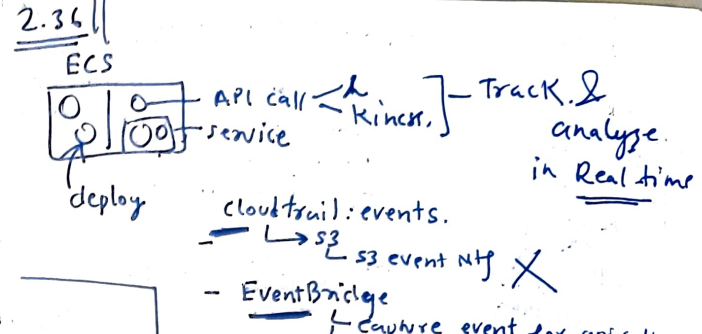 2.36
ECS
API call
Kincs.
Track &
analyze
in Real time
service
deploy
cloudtrail: events.
S3
S3 event Ntf X
- EventBridge
capture event for